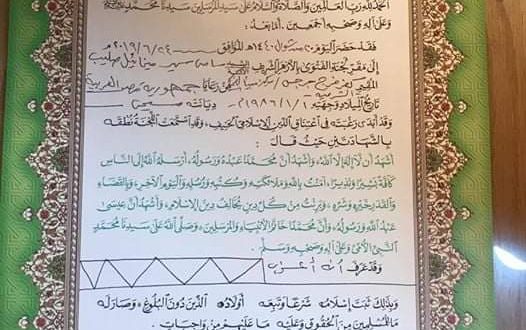 الحمد لله رب العالمين والصلاة والسلام على سيد المرسلين سيدنا محمد
وعلى آله وصحبه أجمعين. أما بعد:
فقد حضر اليوم ٢٠ شوال ١٤٤٠ هـ الموافق ٢٠١٩/٦/٢٤ م
إلى مقر لجنة الفتوى بالأزهر الشريف
المقيم جمهورية مصر العربية
تاريخ الميلاد وجهته ١٩٨٦/١/١ ديانته مسيحي
وقد أبدى رغبته في اعتناق الدين الإسلامي الحنيف، وقد استمعت اللجنة نطقه
بالشهادتين حيث قال:
أشهد أن لا إله إلا الله، وأشهد أن محمداً عبده ورسوله، أرسله الله إلى الناس
كافة بشيراً ونذيراً، آمنت بالله وملائكته وكتبه ورسله واليوم الآخر، وبالقضاء
والقدر خيره وشره، وبرئت من كل دين يخالف دين الإسلام، وأشهد أن عيسى
عبد الله ورسوله، وأن محمداً خاتم الأنبياء والمرسلين، وصلى الله على سيدنا محمد
النبي الأمي وعلى آله وصحبه وسلم.
وقد عرف
وبذلك ثبت إسلامه شرعاً وتبعه أولاده الذين دون البلوغ، وصار له
ما للمسلمين من الحقوق وعليه ما عليهم من واجبات.